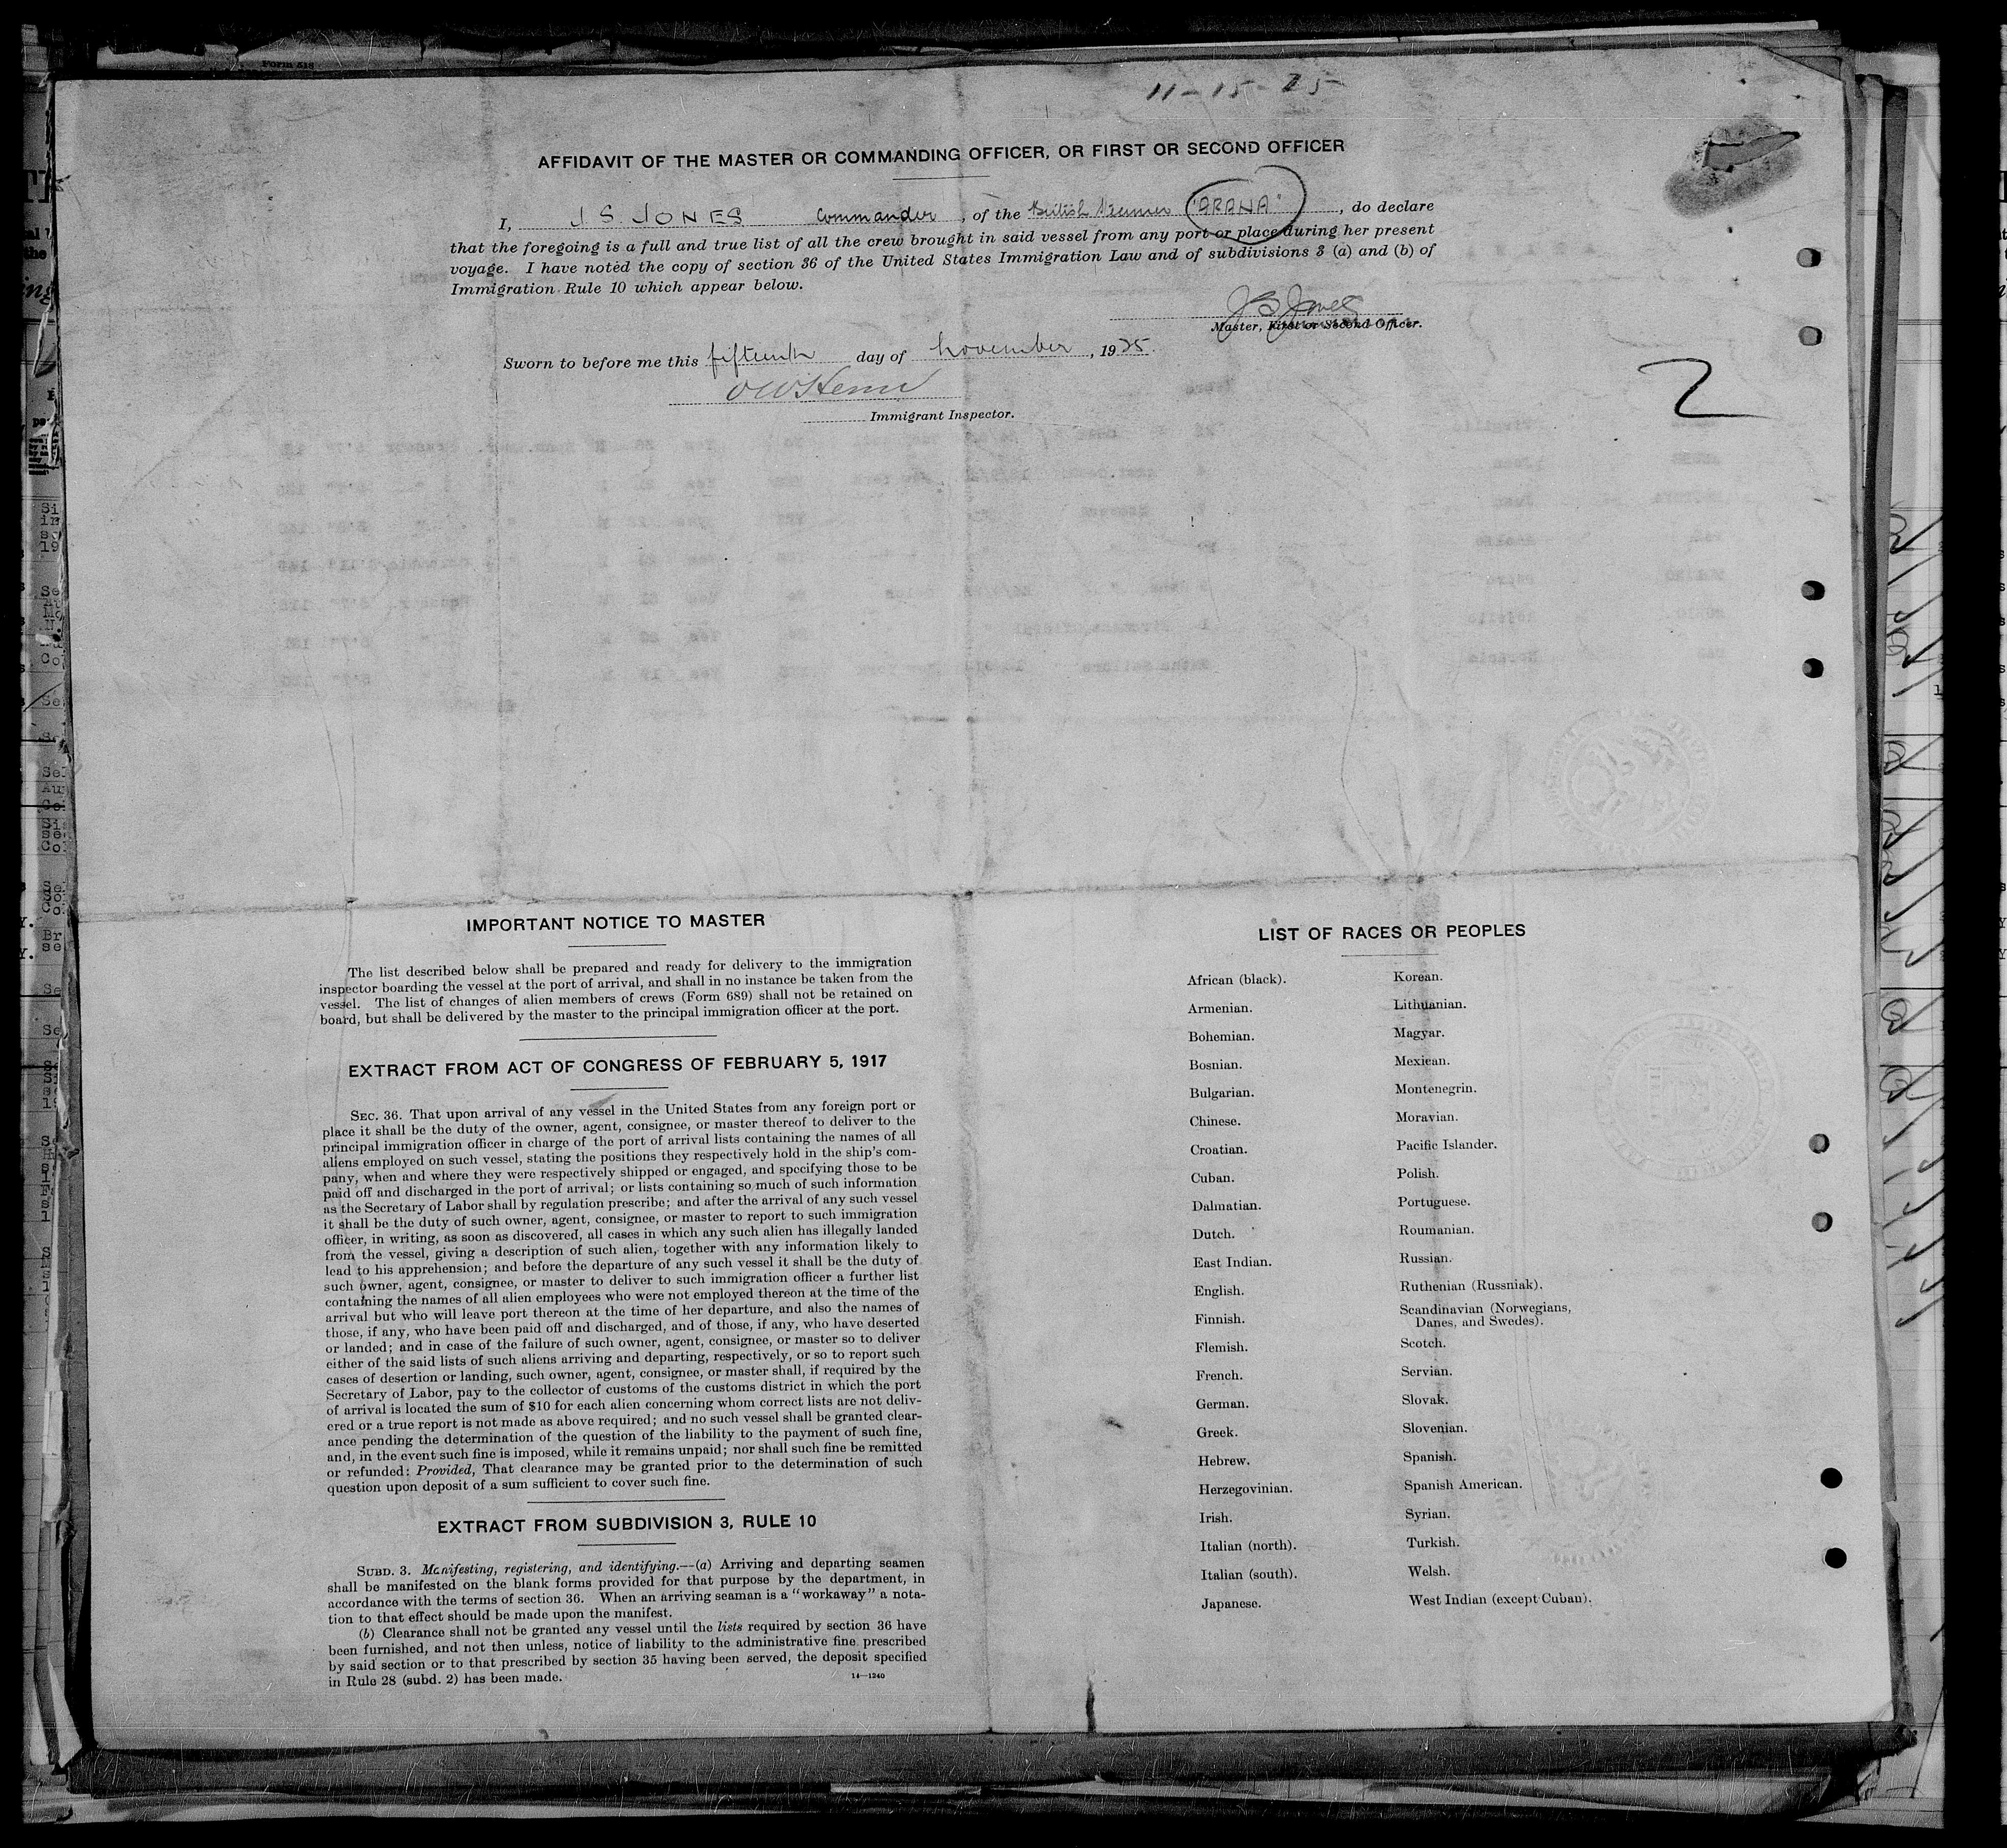 11-15-25
AFFIDAVIT OF THE MASTER OR COMMANDING OFFICER, OR FIRST OR SECOND OFFICER
I, J. S. JONES Commander, of the British Steamer "ARANA", do declare
that the foregoing is a full and true list of all the crew brought in said vessel from any port or place during her present
voyage. I have noted the copy of section 36 of the United States Immigration Law and of subdivisions 3 (a) and (b) of
Immigration Rule 10 which appear below.
J S Jones
Master, First or Second Officer.
Sworn to before me this fifteenth day of November, 1925.
Immigrant Inspector.
2
IMPORTANT NOTICE TO MASTER
The list described below shall be prepared and ready for delivery to the immigration
inspector boarding the vessel at the port of arrival, and shall in no instance be taken from the
vessel. The list of changes of alien members of crews (Form 689) shall not be retained on
board, but shall be delivered by the master to the principal immigration officer at the port.
EXTRACT FROM ACT OF CONGRESS OF FEBRUARY 5, 1917
SEC. 36. That upon arrival of any vessel in the United States from any foreign port or
place it shall be the duty of the owner, agent, consignee, or master thereof to deliver to the
principal immigration officer in charge of the port of arrival lists containing the names of all
aliens employed on such vessel, stating the positions they respectively hold in the ship's com-
pany, when and where they were respectively shipped or engaged, and specifying those to be
paid off and discharged in the port of arrival; or lists containing so much of such information
as the Secretary of Labor shall by regulation prescribe; and after the arrival of any such vessel
it shall be the duty of such owner, agent, consignee, or master to report to such immigration
officer, in writing, as soon as discovered, all cases in which any such alien has illegally landed
from the vessel, giving a description of such alien, together with any information likely to
lead to his apprehension; and before the departure of any such vessel it shall be the duty of
such owner, agent, consignee, or master to deliver to such immigration officer a further list
containing the names of all alien employees who were not employed thereon at the time of the
arrival but who will leave port thereon at the time of her departure, and also the names of
those, if any, who have been paid off and discharged, and of those, if any, who have deserted
or landed; and in case of the failure of such owner, agent, consignee, or master so to deliver
either of the said lists of such aliens arriving and departing, respectively, or so to report such
cases of desertion or landing, such owner, agent, consignee, or master shall, if required by the
Secretary of Labor, pay to the collector of customs of the customs district in which the port
of arrival is located the sum of $10 for each alien concerning whom correct lists are not deliv-
ered or a true report is not made as above required; and no such vessel shall be granted clear-
ance pending the determination of the question of the liability to the payment of such fine,
and, in the event such fine is imposed, while it remains unpaid; nor shall such fine be remitted
or refunded: Provided, That clearance may be granted prior to the determination of such
question upon deposit of a sum sufficient to cover such fine.
EXTRACT FROM SUBDIVISION 3, RULE 10
SUBD. 3. Manifesting, registering, and identifying.—(a) Arriving and departing seamen
shall be manifested on the blank forms provided for that purpose by the department, in
accordance with the terms of section 36. When an arriving seaman is a "workaway" a nota-
tion to that effect should be made upon the manifest.
(b) Clearance shall not be granted any vessel until the lists required by section 36 have
been furnished, and not then unless, notice of liability to the administrative fine prescribed
by said section or to that prescribed by section 35 having been served, the deposit specified
in Rule 28 (subd. 2) has been made.
14—1240
LIST OF RACES OR PEOPLES
African (black).
Armenian.
Bohemian.
Bosnian.
Bulgarian.
Chinese.
Croatian.
Cuban.
Dalmatian.
Dutch.
East Indian.
English.
Finnish.
Flemish.
French.
German.
Greek.
Hebrew.
Herzegovinian.
Irish.
Italian (north).
Italian (south).
Japanese.
Korean.
Lithuanian.
Magyar.
Mexican.
Montenegrin.
Moravian.
Pacific Islander.
Polish.
Portuguese.
Roumanian.
Russian.
Ruthenian (Russniak).
Scandinavian (Norwegians,
Danes, and Swedes).
Scotch.
Servian.
Slovak.
Slovenian.
Spanish.
Spanish American.
Syrian.
Turkish.
Welsh.
West Indian (except Cuban).